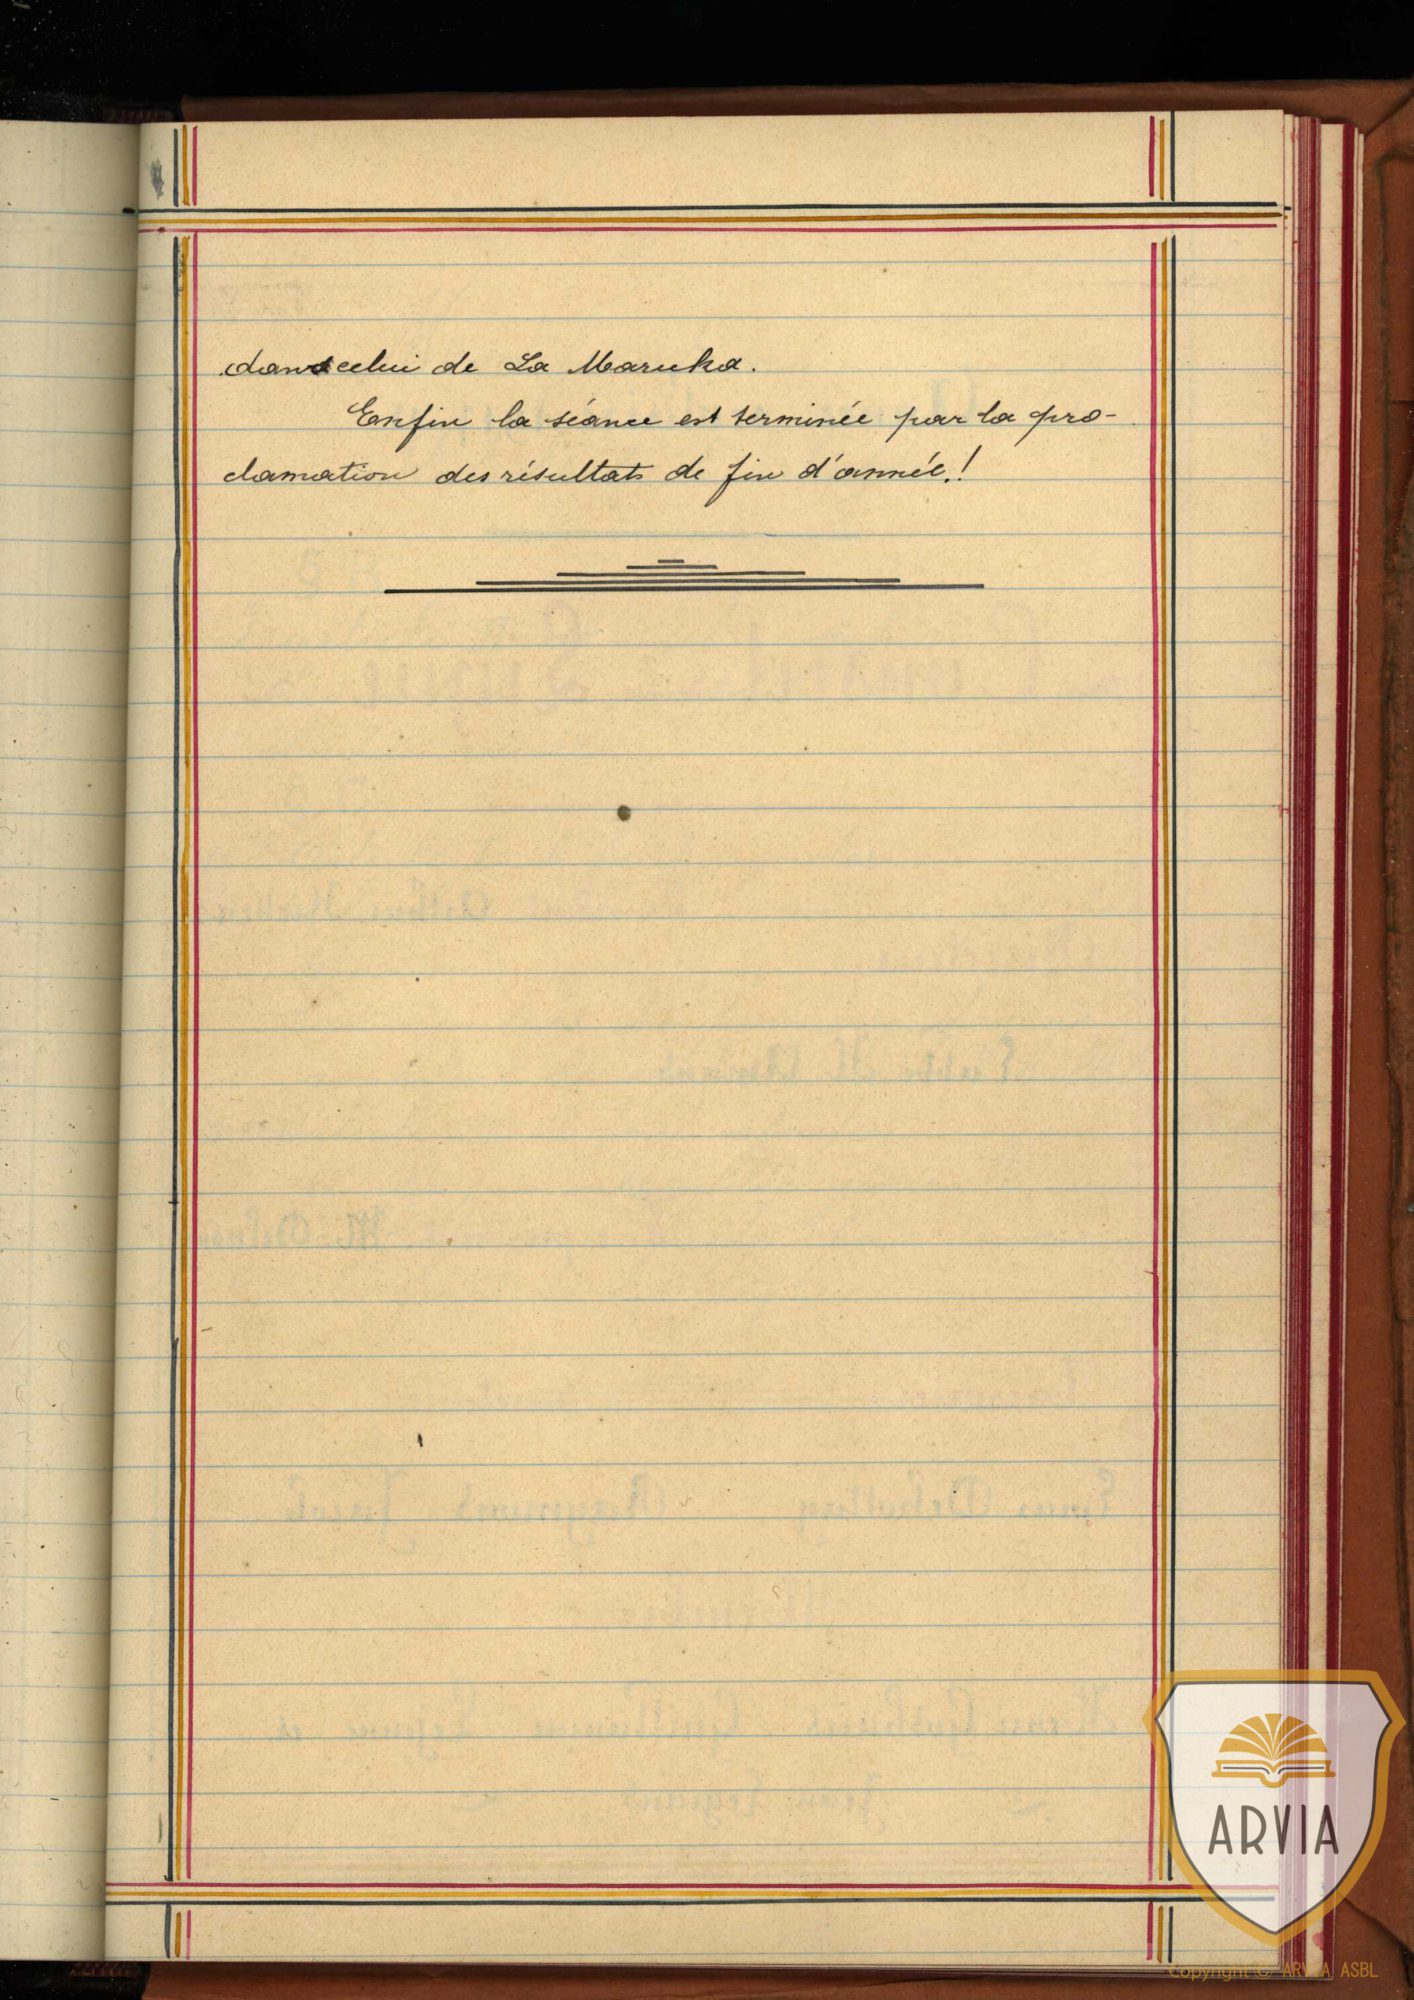 dans celui de La Maruka.
Enfin la séance est terminée par la pro-
clamation des résultats de fin d'année.!
ARVIA
Copyright © ARVIA ASBL